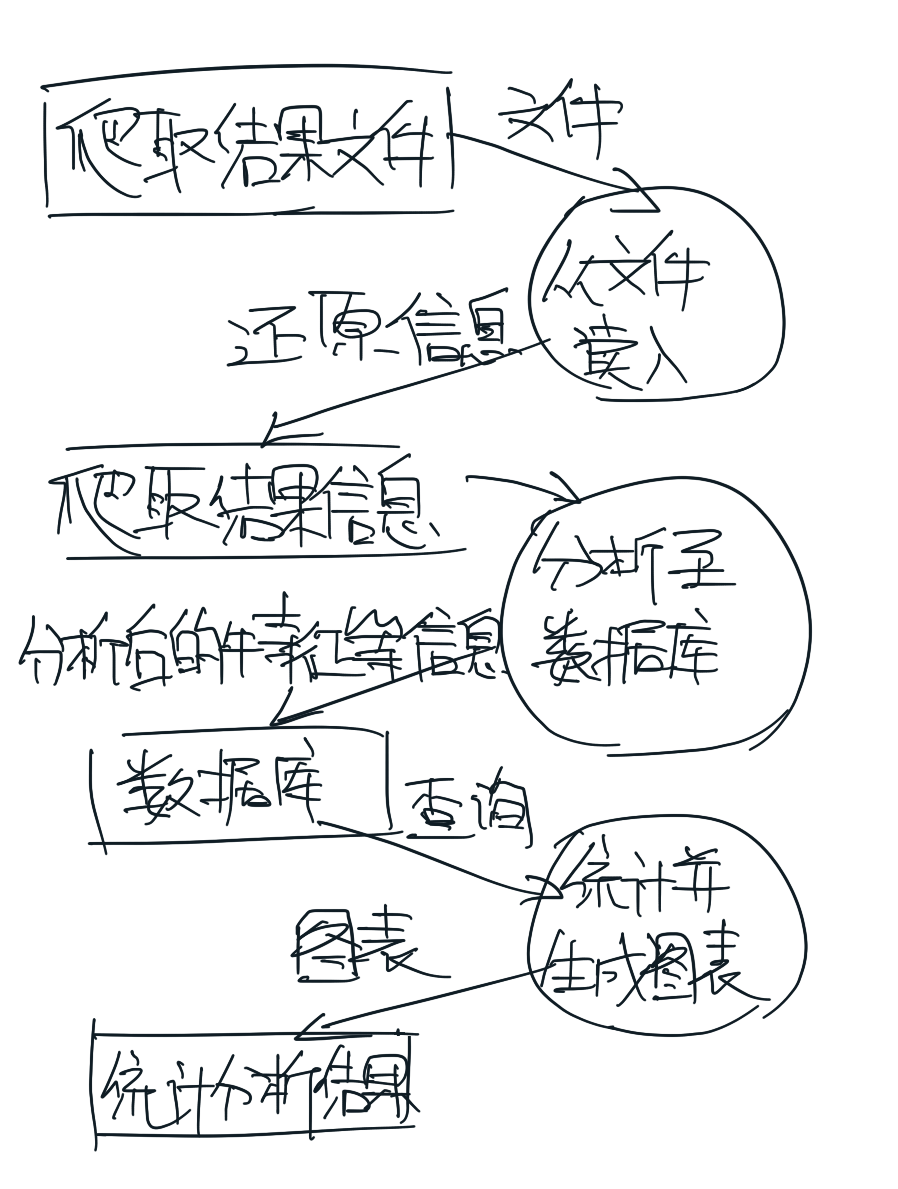 爬取结果文件
文件
从文件
载入
还原信息
爬取结果信息
分析至
数据库
分析后的作者汇等信息
数据库
查询
统计并
生成图表
图表
统计分析结果